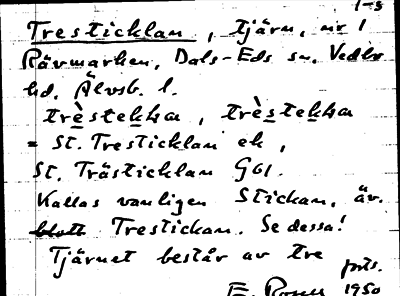 1-s
Tresticklan, tjärn, nr 1
Rävmarken, Dals-Eds sn, Vedbo
hd, Älvsb. l.
trèstekka, trèstekka
= St. Tresticklan ek,
St. Trästicklan G61.
Kallas vanligen Stickan, äv.
blott Trestickan. Se dessa!
Tjärnet består av tre
forts.
E. 1950